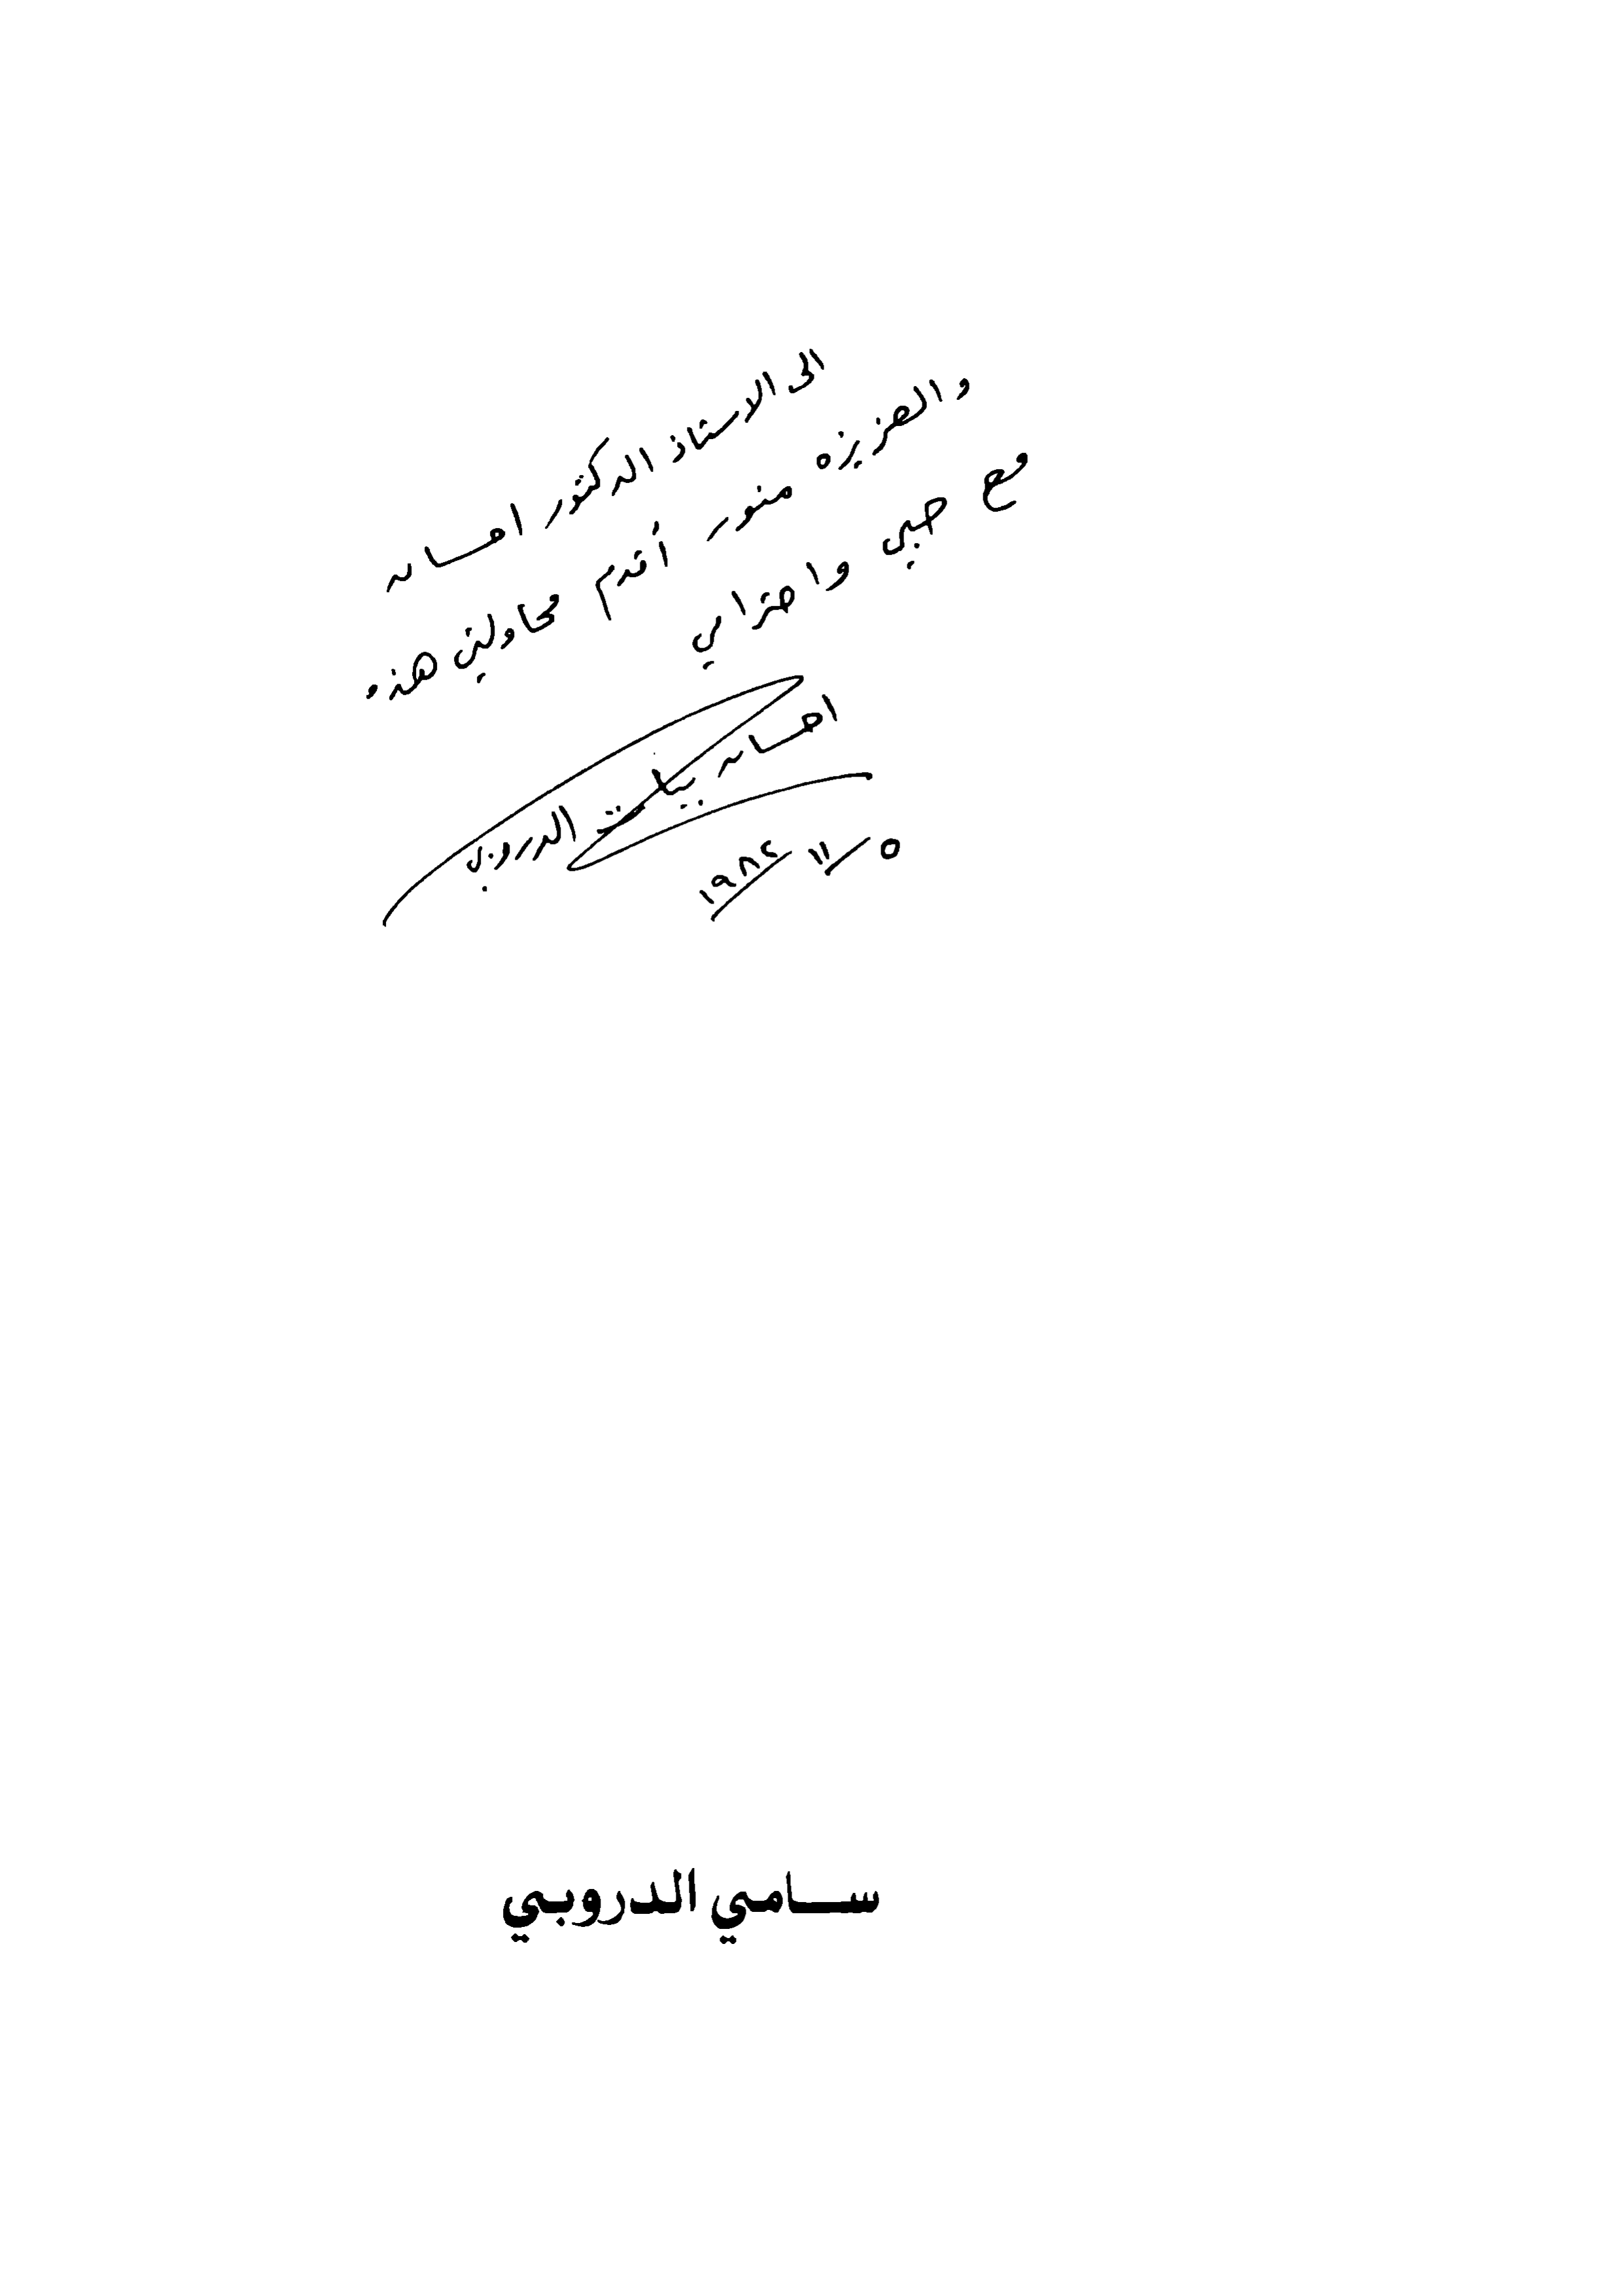 الى الاستاذ الدكتور احسان
والعزيزه منور أقدم محاولتي هذه
مع حبي واحترامي
احسان بيات الدروبي
٥ / ١١ / ١٩٨٢
سامي الدروبي